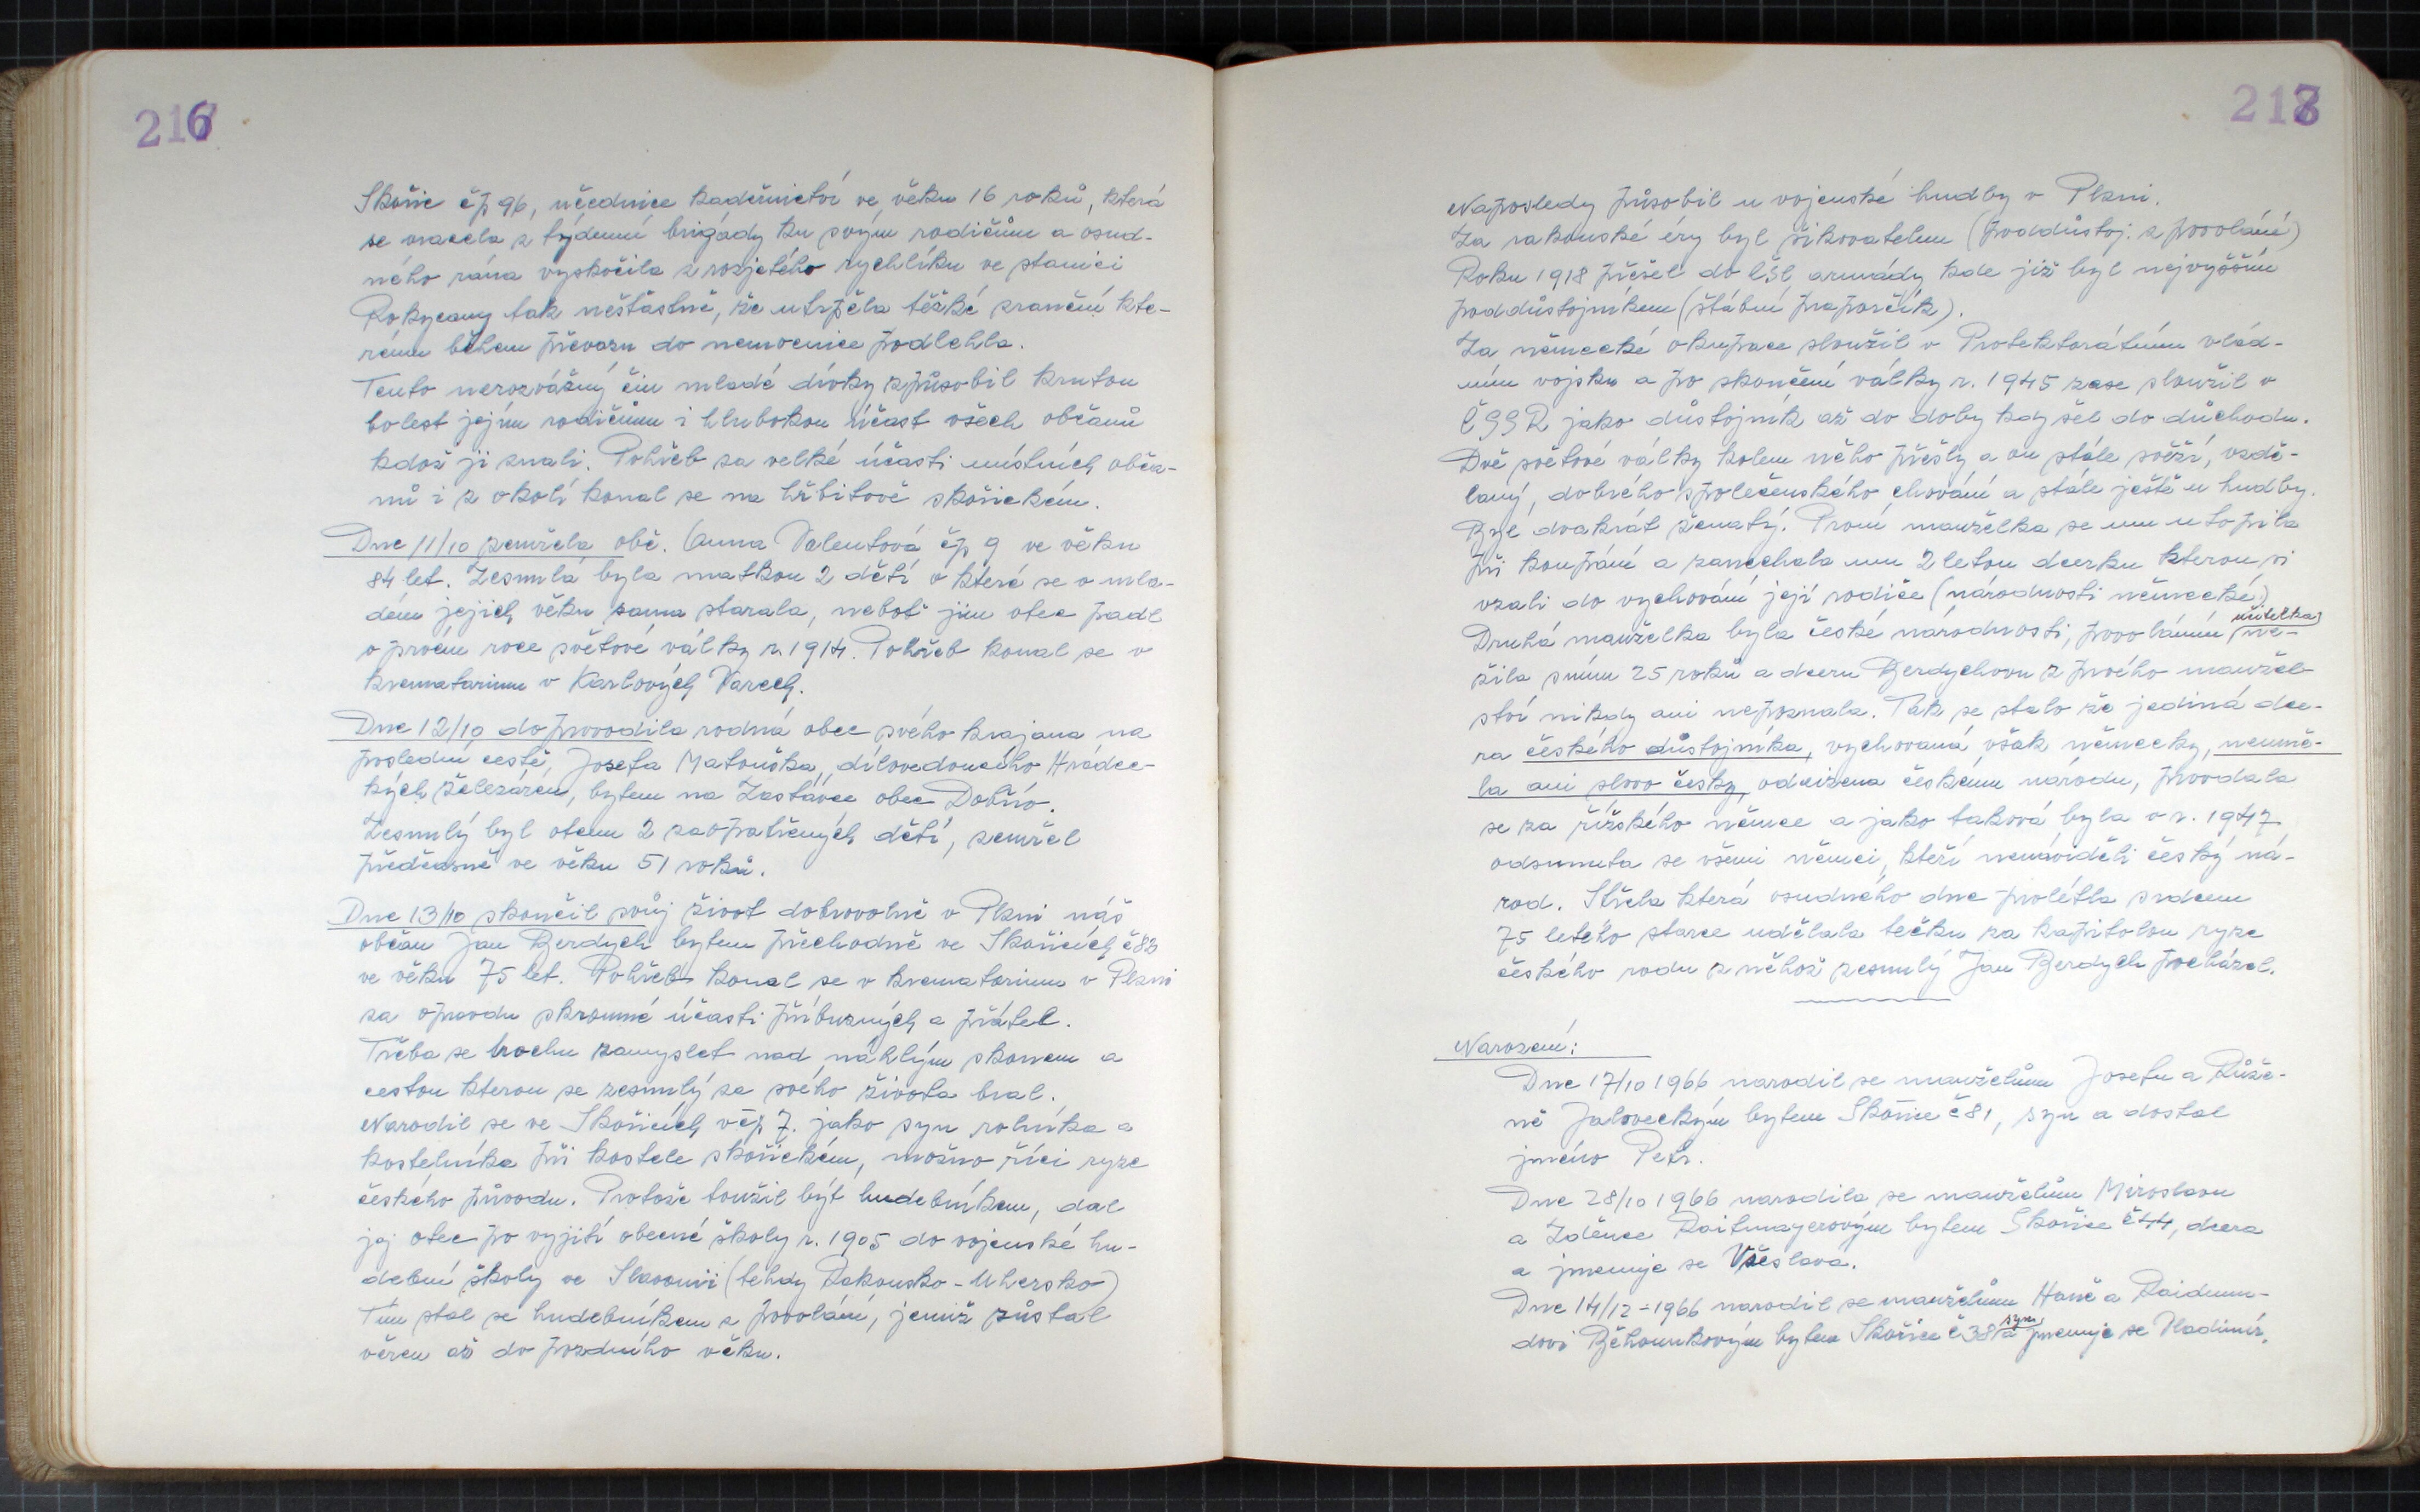 216
Skořic čp 96, učednice kadeřnictví ve věku 16 roků, která
se vracela z týdenní brigády ku svým rodičům a osud-
ného rána vyskočila z rozjetého rychlíku ve stanici
Rokycany tak nešťastně, že utrpěla těžké zranění kte-
rému během převozu do nemocnice podlehla.
Tento nerozvážný čin mladé dívky způsobil krutou
bolest jejím rodičům i hlubokou účast všech občanů
kdož ji znali. Pohřeb za velké účasti místních obča-
nů i z okolí konal se na hřbitově skořickém.
Dne 11/10 zemřela obč. Anna Valentová čp 9 ve věku
84 let. Zesnulá byla matkou 2 dětí o které se v mla-
dém jejich věku sama starala, neboť jim otec padl
v prvém roce světové války r. 1914. Pohřeb konal se v
krematorium v Karlových Varech.
Dne 12/10 doprovodila rodná obec svého krajana na
poslední cestě, Josefa Matouška, dílovedoucího Hrádec-
kých železáren, bytem na Zastávce obec Dobřív.
Zesnulý byl otcem 2 zaopatřených dětí, zemřel
předčasně ve věku 51 roků.
Dne 13/10 skončil svůj život dobrovolně v Plzni náš
občan Jan Berdych bytem přechodně ve Skořicích č 83
ve věku 75 let. Pohřeb konal se v krematorium v Plzni
za opravdu skromné účasti příbuzných a přátel.
Třeba se trochu zamyslet nad náhlým skonem a
cestou kterou se zesnulý za svého života bral.
Narodil se ve Skořicích včp 7. jako syn rolníka a
kostelníka při kostele skořickém, možno říci ryze
českého původu. Protože toužil být hudebníkem, dal
jej otec po vyjití obecné školy r. 1905 do vojenské hu-
dební školy ve Slavonii (tehdy Rakousko-Uhersko)
Tím stal se hudebníkem z povolání, jemuž zůstal
věren až do pozdního věku.
217
Naposledy působil u vojenské hudby v Plzni.
Za rakouské éry byl šikovatelem (poddůstoj. z povolání)
Roku 1918 přešel do čsl armády kde již byl nejvyšším
poddůstojníkem (štábní praporčík).
Za německé okupace sloužil v Protektorátním vlád-
ním vojsku a po skončení války r. 1945 zase sloužil v
ČSSR jako důstojník až do doby kdy šel do důchodu.
Dvě světové války kolem něho přešly a on stále svěží, vzdě-
laný, dobrého společenského chování a stále ještě u hudby.
Byl dvakrát ženatý. První manželka se mu utopila
při koupání a zanechala mu 2 letou dcerku kterou si
vzali do vychování její rodiče (národnosti německé)
Druhá manželka byla české národnosti, povoláním učitelka
žila sním 25 roků a dceru Berdychovu z prvého manžel-
ství nikdy ani nepoznala. Tak se stalo že jediná dce-
ra českého důstojníka, vychovaná však německy, neumě-
la ani slovo česky, odcizena českému národu, provdala
se za říšského němce a jako taková byla v r. 1947
odsunuta se všemi němci, kteří nenáviděli český ná-
rod. Střela která osudného dne prolétla srdcem
75 letého starce udělala tečku za kapitolou ryze
českého rodu z něhož zesnulý Jan Berdych pocházel.
Narození:
Dne 17/10 1966 narodil se manželům Josefu a Růže-
ně Jaloveckým bytem Skořice č 81, syn a dostal
jméno Petr.
Dne 28/10 1966 narodila se manželům Miroslavu
a Zdeňce Raitmayerovým bytem Skořice č 44, dcera
a jmenuje se Věslava.
Dne 14/12-1966 narodil se manželům Haně a Raimun-
dovi Běhounkovým bytem Skořice č 38 syn a jmenuje se Vladimír.